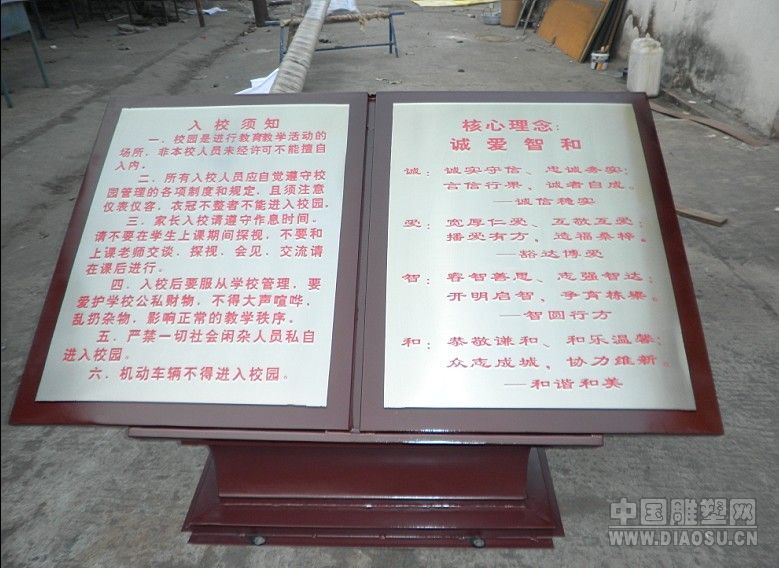 入校须知
一．校园是进行教育教学活动的
场所，非本校人员未经许可不能擅自
入内。
二．所有入校人员应自觉遵守校
园管理的各项制度和规定，且须注意
仪表仪容，衣冠不整者不能进入校园。
三．家长入校请遵守作息时间。
请不要在学生上课期间探视，不要和
上课老师交谈．探视、会见、交流请
在课后进行。
四．入校后要服从学校管理，要
爱护学校公私财物，不得大声喧哗，
乱扔杂物，影响正常的教学秩序。
五．严禁一切社会闲杂人员私自
进入校园。
六．机动车辆不得进入校园。
核心理念：
诚爱智和
诚：诚实守信、忠诚务实；
言信行果，诚者自成。
—诚信穗实
爱：宽厚仁爱、互敬互爱；
播爱有方，造福桑梓。
—豁达博爱
智：睿智善思、志强智达；
开明启智，争育栋梁。
—智圆行方
和：恭敬谦和、和乐温馨；
众志成城，协力维新。
—和谐和美
中国雕塑网
WWW.DIAOSU.CN